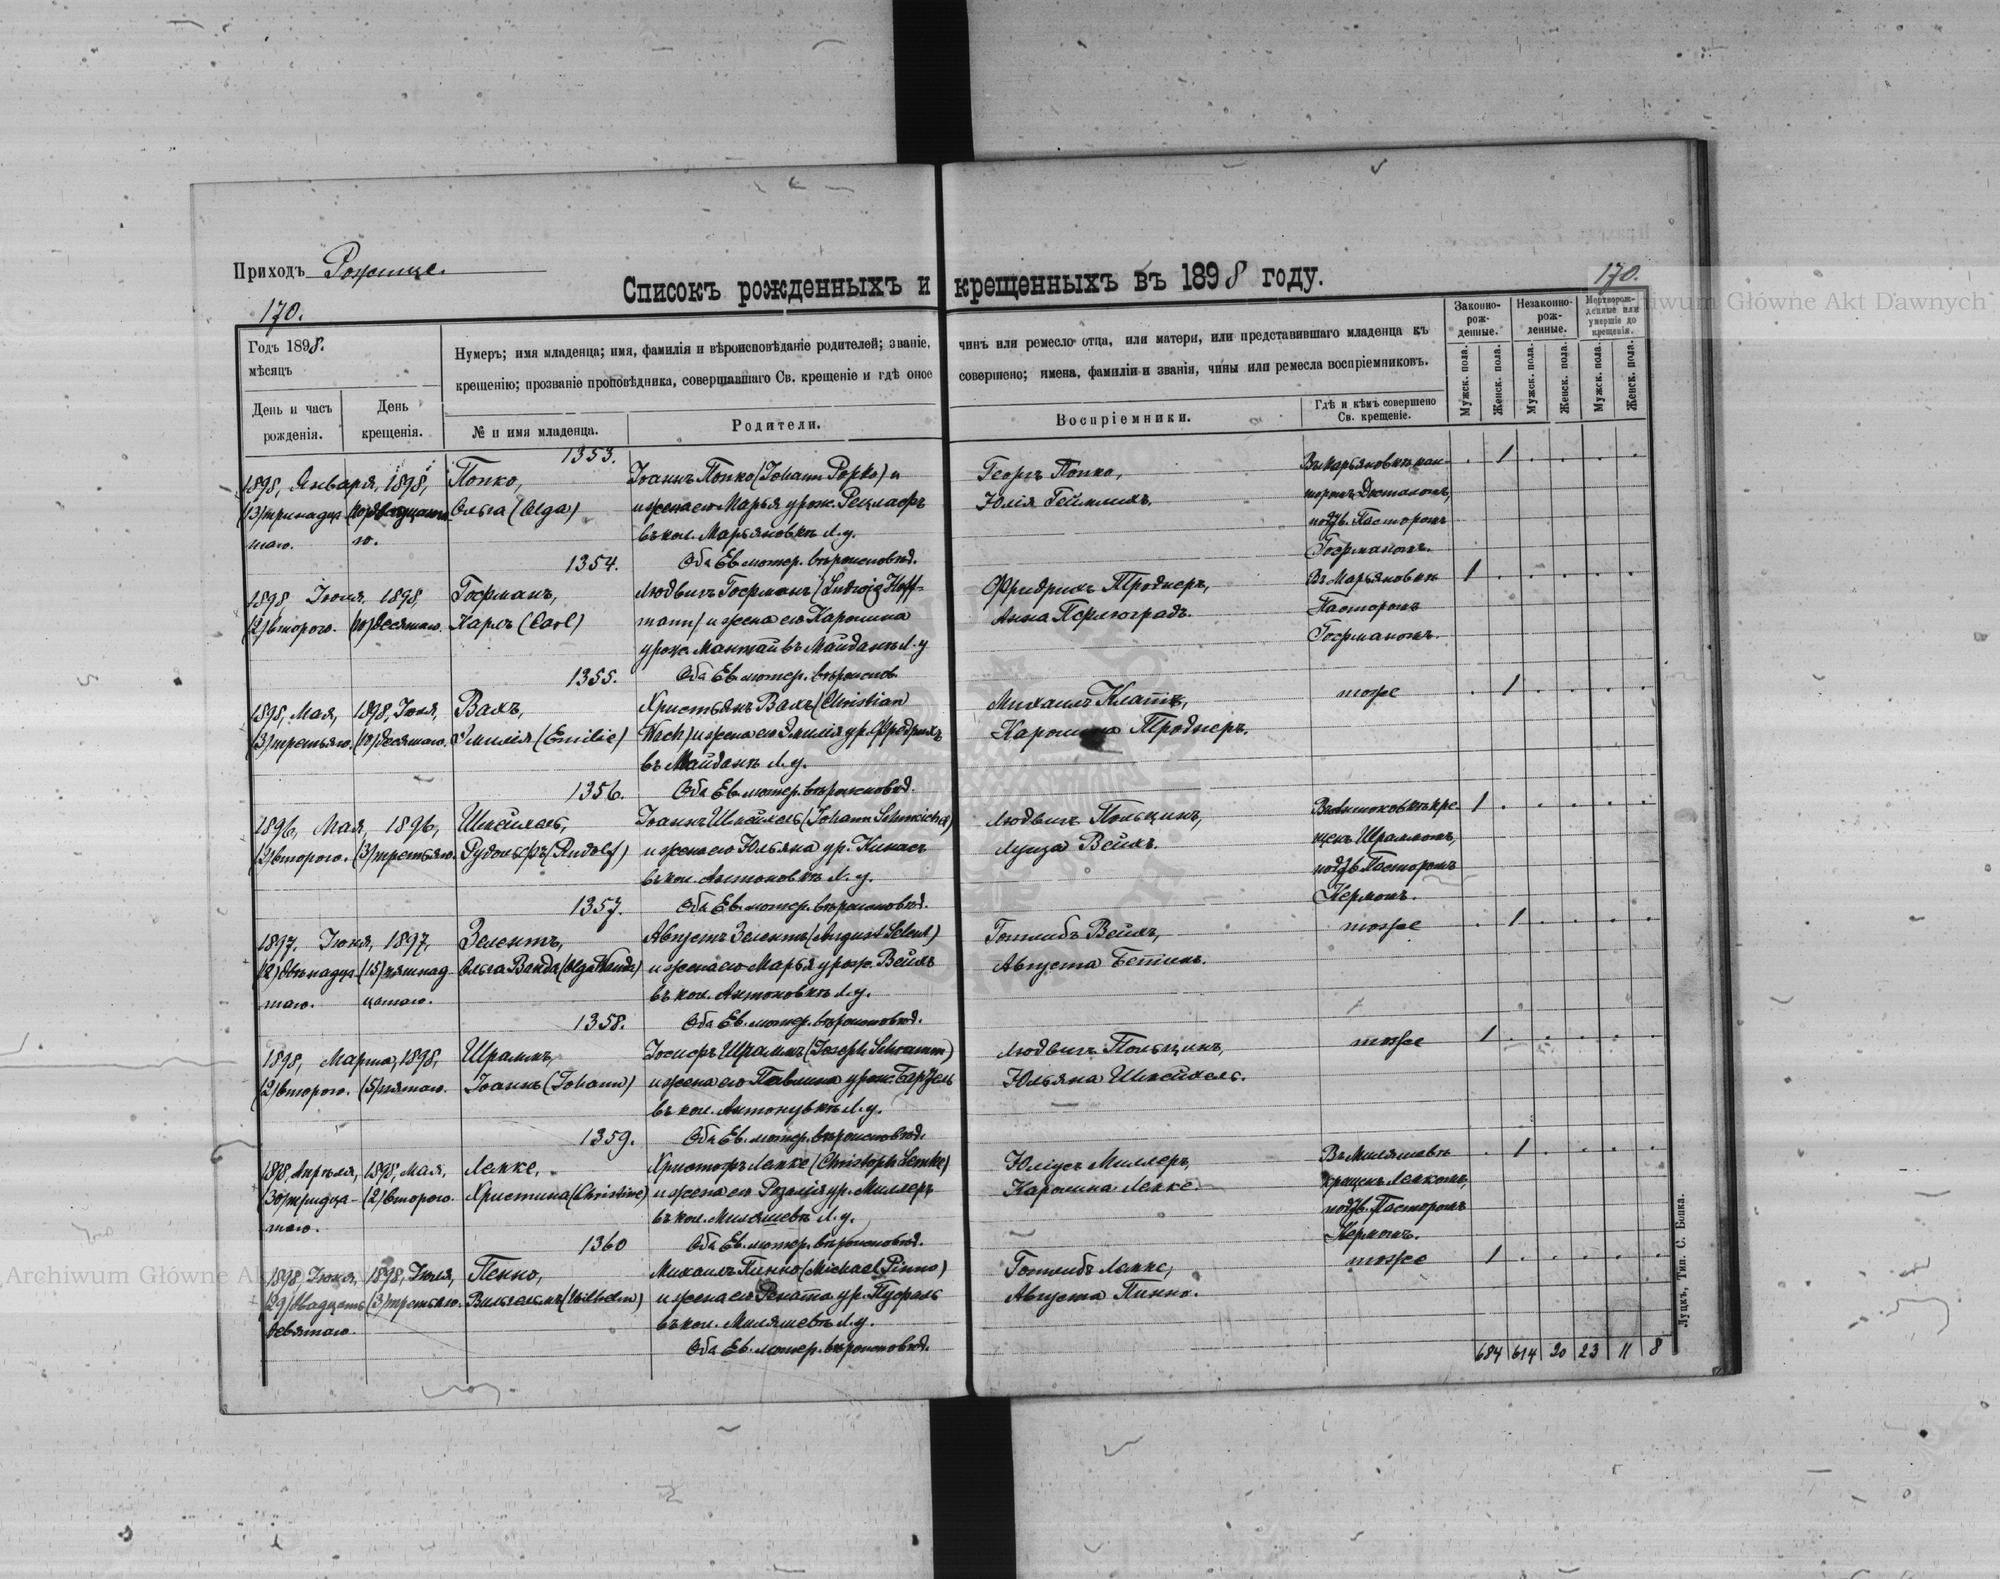 Приходъ Рожище.
170.
Списокъ рожденныхъ и крещенныхъ въ 1898 году.
170.
Archiwum Główne Akt Dawnych
Годъ 1898.
мѣсяцъ
День и часъ рожденія.
День крещенія.
Нумеръ; имя младенца; имя, фамилія и вѣроисповѣданіе родителей; званіе, чинъ или ремесло отца, или матери, или представившаго младенца къ
крещенію; прозваніе проповѣдника, совершавшаго Св. крещеніе и гдѣ оное совершено; имена, фамиліи и званія, чины или ремесла воспріемниковъ.
№ и имя младенца.
Родители.
Воспріемники.
Гдѣ и кѣмъ совершено Св. крещеніе.
Законно-рож-денные.
Незаконно-рож-ленные.
Мертворож-денные или умершіе до крещенія.
Мужск. пола.
Женск. пола.
Мужск. пола.
Женск. пола.
Мужск. пола.
Женск. пола.
1353.
1898, Января, 1898,
Попко,
Іоаннъ Попко (Johann Popko) и
Георгъ Попко,
1
таго.
Ольга (Olga)
и жена его Марья урож. Рецлафъ
Юлія Геймлихъ.
въ кол. Марьяновкѣ Л. у.
подтв. Пасторомъ
Оба Ев. лютер. вѣроисповѣд.
Гофманомъ.
1354.
1898, Іюня, 1898,
Гофманъ,
Людвигъ Гофманъ (Ludwig Hoff-
Фридрихъ Троднеръ,
Въ Марьяновкѣ
1
(2) второго. (10) десятаго.
Карлъ (Carl)
mann) и жена его Каролина
Пасторомъ
урож. Мантай въ Майданѣ Л. у
Гофманомъ.
Оба Ев. лютер. вѣроиспов.
1355.
1898, Мая, 1898, Іюня,
Вахъ,
Христьянъ Вахъ (Christian
тоже
1
(3) третьяго. (10) десятаго.
Эмилія (Emilie)
Wach) и жена его Эмилія ур. Фридрихъ
Каролина Троднеръ.
въ Майданѣ Л. у.
Оба Ев. лютер. вѣроисповѣд.
1356.
1896, Мая, 1896,
Іоаннъ
Людвигъ Польцинъ,
1
(2) второго. (3) третьяго.
Рудольфъ (Rudolf)
и жена его Юльяна ур. Кинасъ
Луиза Вейхъ
щенъ Шраммомъ,
въ кол. Антоновкѣ Л. у.
подтв. Пасторомъ
Оба Ев. лютер. вѣроисповѣд.
Кермомъ.
1357.
1897, Іюня, 1897,
Зелентъ,
Августъ Зелентъ (August Selent)
Готлибъ Вейхъ,
тоже
1
(12) двѣнадца (15) пятнад
Ольга Ванда (Olga Wanda)
и жена его Марья урож. Вейхъ
таго. цатаго.
въ кол. Антоновкѣ Л. у.
Оба Ев. лютер. вѣроисповѣд.
1358.
1898, Марта, 1898,
Шраммъ,
Іосифъ Шраммъ (Joseph Schramm)
Людвигъ Польцинъ,
тоже
1
(2) второго. (5) пятаго.
Іоаннъ (Johann)
и жена его Павлина урож. Барцель
Юльяна
Оба Ев. лютер. вѣроисповѣд.
1359.
1898, Апрѣля, 1898, Мая,
Лемке,
Христофъ Лемке (Christoph Lemke)
Юліусъ Миллеръ,
Въ Миляшевѣ
1
(30) тридца- (2) второго.
Христина (Christine)
и жена его Розалія ур. Миллеръ
Каролина Лемке.
крещенъ Лемкомъ,
таго.
въ кол. Миляшевѣ Л. у.
подтв. Пасторомъ
Оба Ев. лютер. вѣроисповѣд.
Кермомъ.
1360
1898, Іюня, 1898, Іюля,
Пенно,
Михаилъ Пинно (Michael Pinno)
Готлибъ Лемке,
тоже
1
(29) двадцать (3) третьяго.
Вильгельмъ (Wilhelm)
и жена его Рената ур. Пуфаль
Августа Пинно.
девятаго.
въ кол. Миляшевѣ Л. у.
Оба Ев. лютер. вѣроисповѣд.
684 614 20 23 11 8
Луцкъ, Тип. С. Бонка.
Archiwum Główne